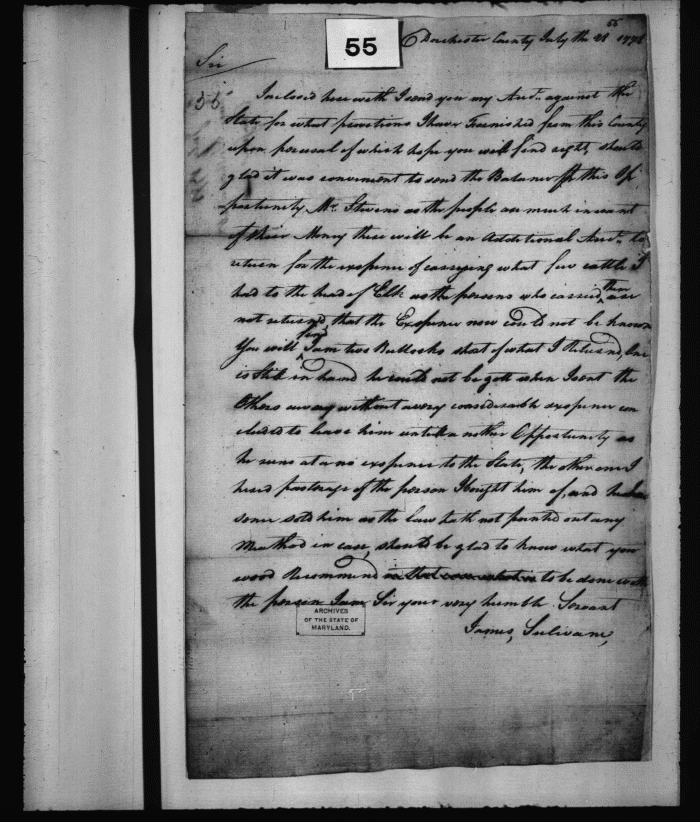 55
55
Dorchester County July the 28 1778
Sir
55
Inclosed here with I send you my Acct. against the
State for what provitions I have Furnished from this County
upon perusal of which hope you will find right, should
glad it was convenient to send the Balance for this Op
portunity Mr. Stevens as the people are much in want
of their Money there will be an Additional Acct. to
return for the expence of carrying what few cattle I
had to the head of Elk as the persons who carried them are
not returnd, that the Expence now could not be known
You will find I am two Bullocks short of what I Returnd, One
is Still in hand he could not be gott when I sent the
Others away without a very considerable expence con
cluded to leave him until a nother Opportunity as
he runs at a no expence to the State, the other one I
hired pasturage of the person I bought him of, and he has
some sold him as the law hath not pointed out any
Meathod in case, should be glad to know what you
wood Recommend to be done with
the person I am Sir your very humble Servant
James, Sulivane,
ARCHIVES
OF THE STATE OF
MARYLAND.